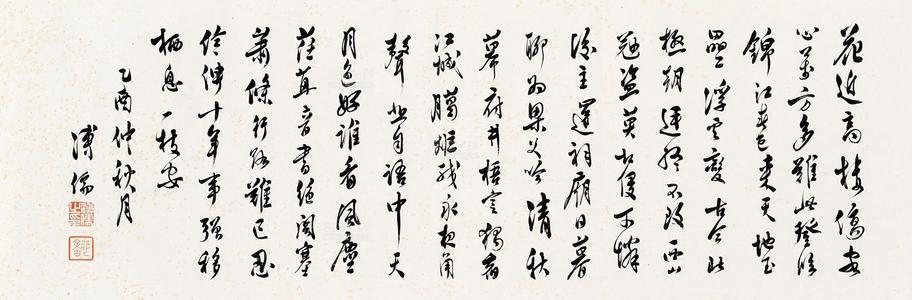 花近高樓傷客
心萬方多難此登臨
錦江春色來天地玉
壘浮雲變古今北
極朝廷終不改西山
寇盜莫相侵可憐
後主還祠廟日暮
聊為梁父吟清秋
幕府井梧寒獨宿
江城蠟炬殘永夜角
聲悲自語中天
月色好誰看風塵
荏苒音書絕關塞
蕭條行路難已忍
伶俜十年事強移
栖息一枝安
乙酉仲秋月
溥儒